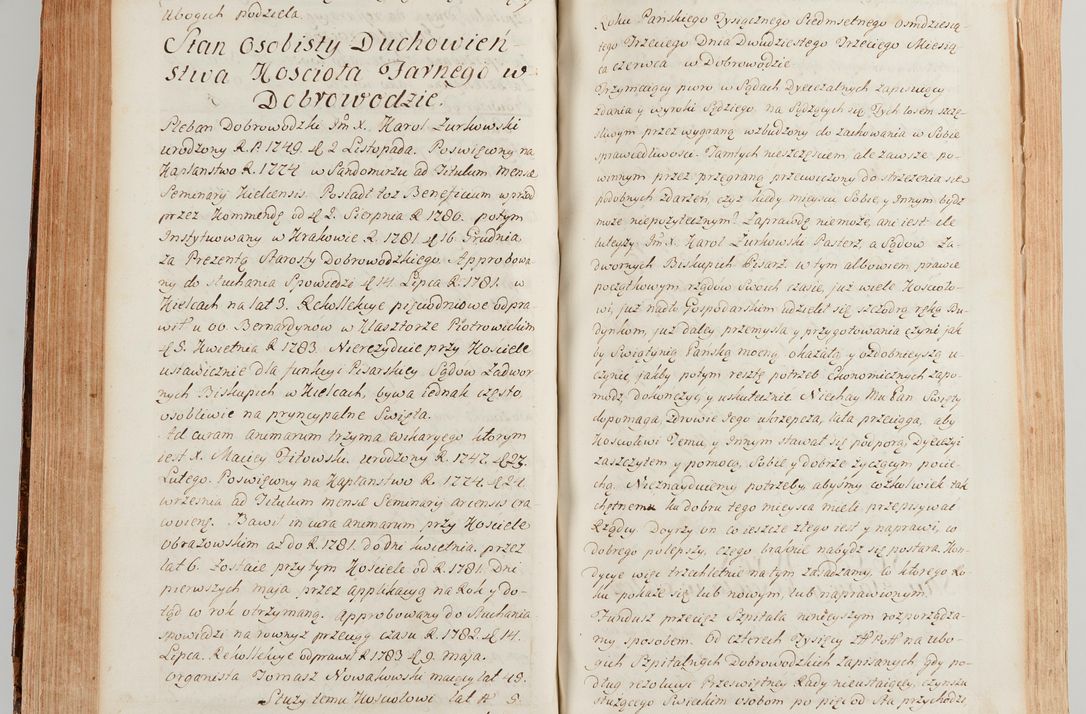 Ubogich podziela.
Stan Osobisty Duchowień-
stwa Kościoła Farnego w
Dobrowodzie.
Pleban Dobrowodzki Jm̃ X. Karol Zurkowski
urodzony R. P. 1749. d. 2 Listopada. Poswięcony na
Kapłanstwo R. 1774 w Sandomirzu ad Titulum mensæ
Seminarij Kielcensis. Posiadł toż Beneficium wprzód
przez Kommendę od d. 2. Sierpnia R. 1780. potym
Instytuowany w Krakowie R. 1781. d. 16 Grudnia
za Prezentą Starosty Dobrowodzkiego. Approbowa-
ny do słuchania Spowiedzi d. 14. Lipca R. 1781. w
Kielcach na lat 3. Rekollekcye pięciodniowe odpra-
wił u OO. Bernardynow w Klasztorze Piotrowickim
d. 5. Kwietnia R 1783. Nierezyduie przy Kościele
ustawicznie dla funkcyi Pisarskiey Sądow Zadwor-
nych Biskupich w Kielcach, bywa iednak często,
osobliwie na pryncypalne Swięta.
Ad curam animarum trzyma wikaryego ktorym
iest X. Maciey Pitowski. urodzony R. 1747. d. 23.
Lutego. Poswięcony na Kapłanstwo R. 1774. d. 24
września ad Titulum mensæ Seminarij arcensis Cra-
coviens. Bawił in cura animarum przy Kościele
Obrazowskim aż do R. 1781. do dni kwietnia. przez
lat 6. Zostaie przy tym Kościele od R. 1781. Dni
pierwszych maja przez applikacyą na Rok y do-
tąd co rok otrzymaną. Approbowany do słuchania
spowiedzi na rownyż przeciąg czasu R. 1782. d. 14.
Lipca. Rekollekcye odprawił R 1783 d. 9. maja.
Organista Tomasz Nowakowski maiący lat 49.
Służy temu Kościołowi lat 5.
Roku Pańskiego Tysiącznego Siedmsetnego Osmdziesią-
tego Trzeciego Dnia Dwudziestego Trzeciego Miesią-
ca Czerwca w Dobrowodzie
Trzymaiący pioro w Sądach Dyecezalnych zapisuiący
zdania y wyroki Sędziego, na Sądzących się Tych losem szczę-
śliwym przez wygraną wzbudzony do zachowania w Sobie
sprawiedliwości. Tamtych nieszczęściem ale zawsze po-
winnym przez przegraną przewiczony do strzeżenia się
podobnych zdarzeń, czyż kiedy mieyscu Sobie y Innym bydź
może niepożytecznym? Zaprawdę niemoże, ani iest: ile
tuteyszy Jm̃ X. Karol Zurkowski Pasterz, a Sądow Za-
dwornych Biskupich Pisarz. w tym albowiem prawie
początkowym rządow Swoich czasie, już wiele Kościoło-
wi, już nadto Gospodarskim udzielił się szczodrą ręką Bu-
dynkom, już daley przemysła y przygotowania czyni jak
by Swiątynią Pańską mocną, okazałą y ozdobnieyszą u-
czynić, jakby potym resztę potrzeb Ekonomicznych zapo-
módz, dokończyć, y uskutecznić. Niechay Mu Pan Swięty
dopomaga, Zdrowie Jego ukrzepcza, lata przeciąga, aby
Kościołowi Temu, y Innym stawał się podporą, Dyecezyi
zaszczytem y pomocą, Sobie y dobrze życzącym pocie-
chą. Nieznayduiemy potrzeby, abyśmy cożkolwiek tak
chętnemu ku dobru tego mieysca mieli przepisywać
Rządcy Doyrzy on co ieszcze złego iest y naprawi, co
dobrego polepszy, czego braknie nabydź się postara. Kon-
dycye więc trzechletnie na tym zasadzamy, co ktorego Ro-
ku pokaże się lub nowym, lub naprawionym.
Fundusz przecież Szpitala ninieyszym rozporządza-
my sposobem. Od czterech Tysięcy Złł Poł na ubo-
gich Szpitalnych Dobrowodzkich zapisanych gdy po-
dług rezolucyi Przeswiętney Rady nieustaiącey, czynszu
służącego Swieckim osobom po pięć od Sta przychodzi